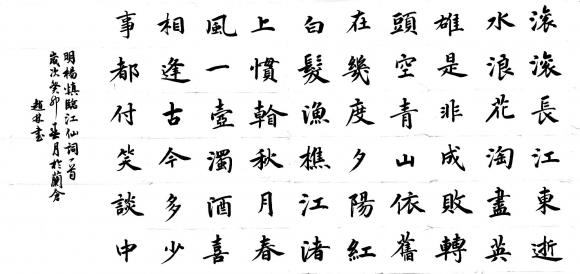 滾滾長江東逝
水浪花淘盡英
雄是非成敗轉
頭空青山依舊
在幾度夕陽紅
白髮漁樵江渚
上慣看秋月春
風一壺濁酒喜
相逢古今多少
事都付笑談中
明楊慎臨江仙詞一首
歲次癸卯月於蘭倉
趙林書